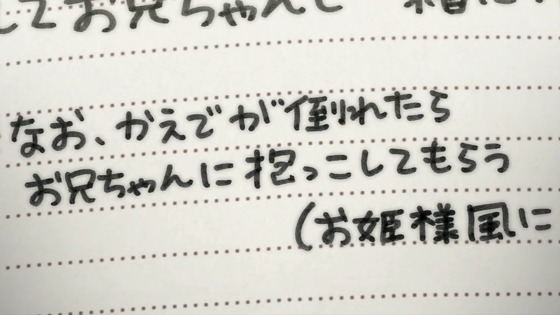 してお兄ちゃんと
なお、かえでが倒れたら
お兄ちゃんに抱っこしてもらう
(お姫様風に